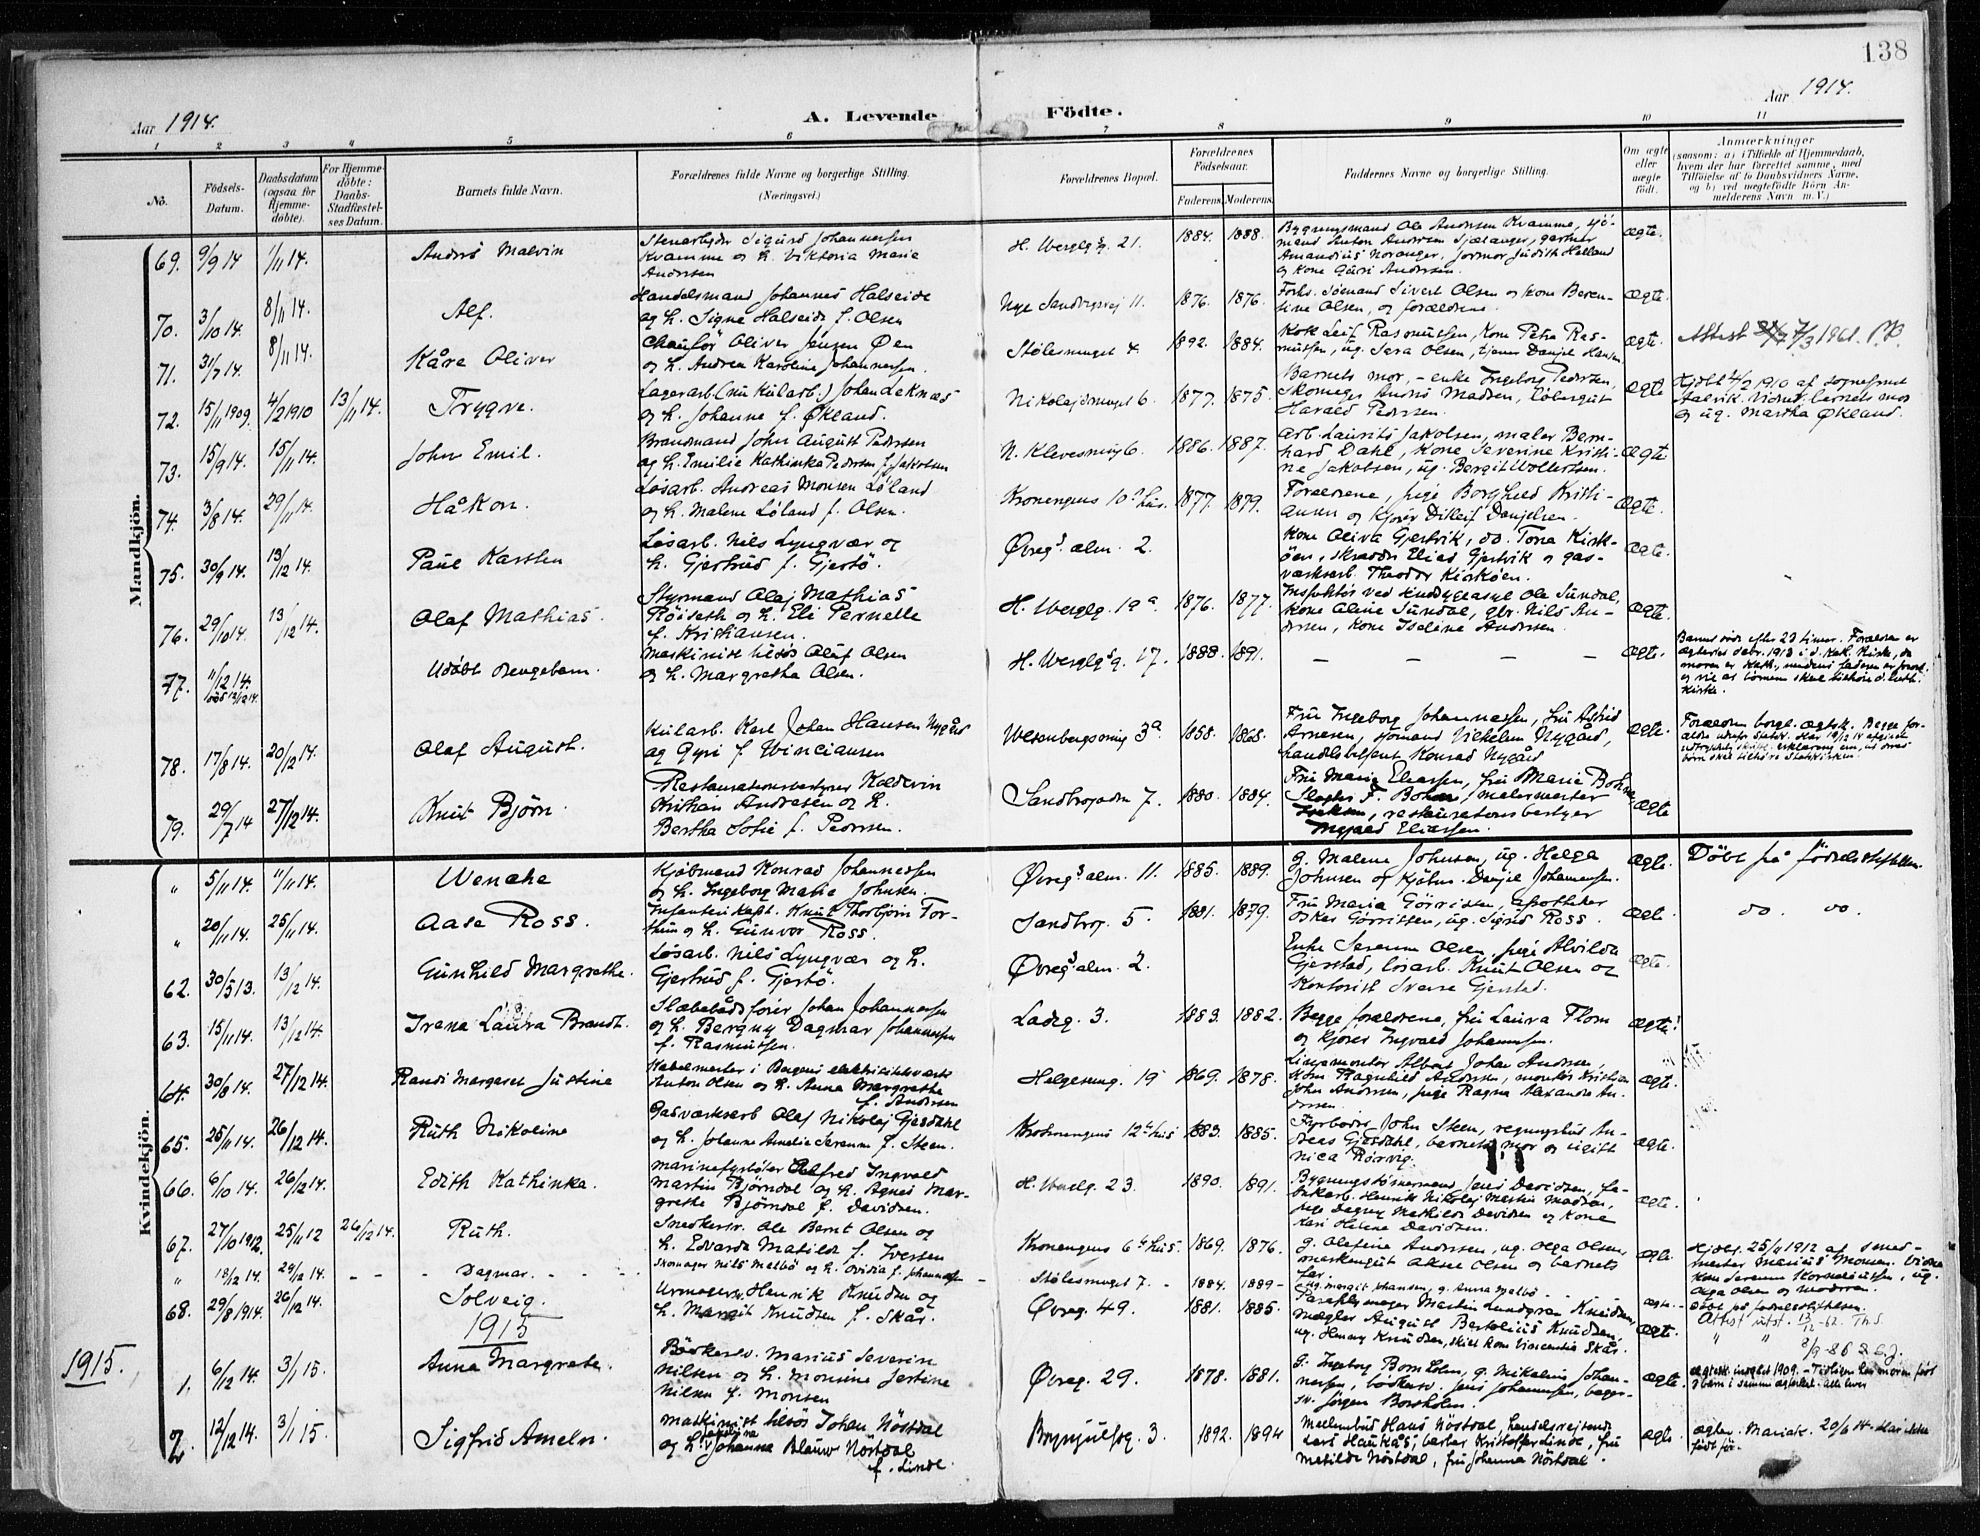 138
Aar 1914.
A. Levende Födte.
Aar 1914.
1 2 3 4 5 6 7 8 9 10 11
No.
Födsels-Datum.
Daabsdatum (ogsaa for Hjemme-döbte).
For Hjemme-döbte: Daabs-Stadfæstel-ses Datum.
Barnets fulde Navn.
Forældrenes fulde Navne og borgerlige Stilling.
(Næringsvei.)
Forældrenes Bopæl.
Forældrenes Födselsaar.
Faderens. Moderens.
Faddernes Navne og borgerlige Stilling.
Om ægte eller uægte födt.
Anmærkninger
(saasom: a) i Tilfælde af Hjemmedaab, hvem der har forrettet samme, med Tilföielse af to Daabsvidners Navne, og b) ved uægtefödte Börn An-melderens Navn m. V.)
Mandkjön.
69. 9/9 14 1/11 14. Anders Malvin
Stenarbeider Sigurd Johannessen
Kvamme og h. Viktoria Marie
Andersen
H. Wergelg. 21. 1884. 1888.
Bygningsmand Ole Andersen Kvamme, sjö-
mand Anton Andersen Sjælanger, gartner
Amandius Noranger, jormor Judith Helland
og kone Guri Andersen.
Ægte.
70. 3/10 14. 8/11 14. Alf.
Handelsmand Johannes Halseide
og h. Signe Halseide f. Olsen
Nye Sandvigsvei 11. 1876. 1876.
Forh. sömand Sivert Olsen og kone Beren-
tine Olsen, og forældrene.
Ægte.
71. 31/7 14. 8/11 14. Kåre Oliver
Chauför Oliver Jensen Øen
og h. Andrea Karoline Johannessen.
Stölesmuget 4. 1892. 1884.
Kok Leif Rasmussen, kone Petra Ras-
mussen, ug. Sera Olsen, tjener Danjel Hansen
Ægte.
Attest 7/3 1961.
72. 15/11 1909. 4/2 1910 13/11 14. Trygve.
Lagerarb. (nu kularb.) Johan Leknæs
og h. Johanne f. Økland.
Nikolajsmuget 6. 1877. 1875.
Barnets mor, - enke Ingeborg Pedersen,
Skomager Anders Madsen, löbergut
Harald Pedersen.
Ægte
Hjdbt 4/2 1910 af sogneprest
Halvik. Vidner barnets mor
og ug. Martha Økland.
73. 15/9 14. 15/11 14. John Emil.
Brandmand John August Pedersen
og h. Emilie Kathinka Pedersen f. Jakobsen
N. Klevesmug 6. 1886. 1887.
Arb. Laurits Jakobsen, maler Bern-
hard Dahl, kone Severine Kristi-
ne Jakobsen, ug. Bergit Wollertsen.
Ægte
74. 3/8 14. 29/11 14. Håkon.
Lösarb. Andreas Monsen Löland
og h. Malene Löland f. Olsen.
Kroneng 10d hus. 1877. 1879.
Forældrene, pige Borghild Kristi-
ansen og kjörer Ditleif Danjelsen.
Ægte.
75. 30/9 14. 13/12 14. Paul Karsten
Lösarb. Nils Lyngvær og
h. Gjertrud f. Gjertö.
Øvregs alm. 2.
Kone Oliva Gjertvik, do. Tora Kirk-
öen, skrædder Elias Gjertvik og gas-
værksarb. Theodor Kirköen.
Ægte.
76. 29/10 14. 13/12 14. Olaf Mathias.
Styrmand Olaf Mathias
Röiseth og h. Eli Pernelle
f. Kristiansen.
H. Wergelg. 19a. 1876. 1877.
Inspektör ved sindssygeasyl Ole Sundal,
kone Aline Sundal, Nils An-
dersen, kone Iseline Andersen.
Ægte.
77. 11/12 14. död 12/12 14. Udöbt drengebarn.
Maskinist tilsös Oluf Olsen
og h. Margretha Olsen.
H. Wergelgs g. 17. 1888. 1891.
– – – –
Ægte.
Barnet döde efter 23 timer. Forældrene er
ægteviet 1913 i d. kat. kirke, da
moren er kath., mendens faderen er prot.
og vil at börnene skal tilhöre d. luth.
kirke.
78. 17/8 14. 20/12 14. Olaf August.
Kularb. Karl Johan Hansen Nygård
og Gyri f. Winciansen
Wesenbergsmug 3a. 1858. 1868.
Fru Ingeborg Johannessen, fru Astrid
Arnesen, sjömand Vilhelm Nygård,
handelsbetjent Konrad Nygård
Ægte.
Forældrene borgl. ægtesk. Begge for-
ældre udenfor statsk. Har 19/12 14 afgivet
udtrykkelig skriftl. erklæring om, at deres
börn skal tilhöre statskirken.
79. 29/7 14 27/12 14. Knut Björn.
Restaurationsbestyrer Haldevin
Kristian Andresen og h.
Bertha Sofie f. Pedersen.
Sandbrogaden 7. 1880. 1884.
Fru Marie Eliassen, fru Marie Bohne,
Slagter F. Bohne, malermester
, restaurationsbestyrer
Ingvald Eliassen.
Ægte
Kvindekjön.
" 5/11 14. 11/11 14. Wenche
Kjöbmand Konrad Johannessen
og h. Ingeborg Marie Johnsen.
Øvregs alm. 11. 1885. 1889.
g. Malene Johnsen, ug. Helga
Johnsen og kjöbm. Danjel Johannessen.
Ægte.
Döbt på födselsstiftelsen.
" 20/11 14. 25/11 14. Aase Ross.
Infanterikapt. Knut Thorbjörn For-
thun og h. Gunvor Ross.
Sandbrog. 5. 1881. 1879.
Fru Maria Görrissen, apotheker
Oskar Görrissen, ug. Sigrid Ross.
Ægte
do. do.
62. 30/5 13. 13/12 14. Gunhild Margrethe.
Lösarb. Nils Lyngvær og h.
Gjertrud f. Gjertö.
Øvregs alm. 2.
Enke Serenne Olsen, pige Alvilda
Gjerstad, lösarb. Knut Olsen og
kontorist Sverre Gjerstad.
Ægte.
63. 15/11 14. 13/12 14. Irene Laura Brandt.
Slæbebådsförer Johan Johannessen
og h. Bergny Dagmar Johannessen
f. Rasmussen.
Ladeg. 3. 1883. 1882.
Begge forældrene, fru Laura Flom
og kjörer Ingvald Johannessen.
Ægte!
64. 30/8 14. 27/12 14. Randi Margaret Justine
Kabelmester i Bergens elektricitetsværk
Anton Olsen og h. Anna Margrethe
f. Andersen
Helgesmug. 19 1869. 1878.
Liniemontör Albert Johan Andersen,
kone Ragnhild Andersen, montör Kristian
John Andersen, pige Ragna Alexandra An-
dersen.
Ægte.
65. 25/11 14. 26/12 14. Ruth Nikoline
Gasværksarb Olaf Nikolaj Gjesdahl
og h. Johanne Amelie Serenne f. Steen.
Kroneng 12t hus 1883. 1885.
Fyrböder John Steen, regningsbud An-
dreas Gjesdahl, barnets mor og ugift
Nica Rörvig.
Ægte.
66. 6/10 14. 26/12 14. Edith Kathinka.
Marinefyrböter Alfred Ingvald
Martin Björndal og h. Agnes Mar-
grethe Björndal f. Davidsen.
H. Wergelg. 23. 1890. 1891.
Bygningstömmermand Jens Davidsen, fa-
brikarb. Henrik Nikolaj Martin Madsen,
pige Dagny Mathilde Davidsen og kone
Kari Helene Davidsen.
Ægte.
67. 27/10 1912. 25/11 12 26/12 14. Ruth.
Snedkersv. Ole Bernt Olsen og
h. Edvarda Matilde f. Iversen
Kroneng 6t hus. 1869. 1876.
g. Olefine Andersen, ug. Olga Olsen,
Aksel Olsen og barnets
far.
Ægte.
Hjdbt. 25/11 1912 af smed-
mester Marius Monsen. Vidner
kone Serenne Korneliussen, ug.
Olga Olsen og moderen.
" 18/12 14. 29/12 14. – – Dagmar. – –
Skomager Nils Melbö og h. Ovidia f. Johannessen
Stölesmuget 7. 1884. 1889
ug. Margit Johansen, g. Anna Melbö
Ægte.
Döbt på födselsstiftelsen.
68. 29/8 1914. 26/12 14. Solveig.
Urmagersv. Henrik Knudsen og
h. Margit Knudsen f. Skår.
Øvreg. 49. 1881. 1885.
Paraplymager Martin Lundgren Knudsen,
mægler August Bertelius Knudsen,
ug. Henny Knudsen, skilt kone Vincentia Skår.
Ægte.
Attest utst. 13/12 -62. Th.S.
" " 8/9 -86
1915
1915.
1. 6/12 14. 3/1 15. Anna Margrete.
Bödkersv. Marius Severin
Nilsen og h. Monsine Jertine
Nilsen f. Monsen
Øvreg. 29. 1878. 1881.
g. Ingeborg Bornholm, g. Nikoline Johan-
nessen, bödkersv. Jens Johannessen, bager-
sv. Jörgen Bornholm.
Ægte.
Ægtesk. indgået 1909. - Tidligere har moren födt
3 börn i samme ægteskab. Alle lever
2. 12/12 14. 3/1 15 Sigfrid Ameln.
Maskinist tilsös Johan Nöstdal
og h. Johanna Blauw Nöstdal
f. Linde.
Brynjulfsg. 3. 1892. 1894
Mælerbud Hans Nöstdal, handelsreisende
Lars Haukås, bager Kristoffer Linde, fru
Matilde Nöstdal, fru Johanna Nöstdal.
Ægte.
Ægtev. Mariak. 20/6 14. Har ikke
födt för.